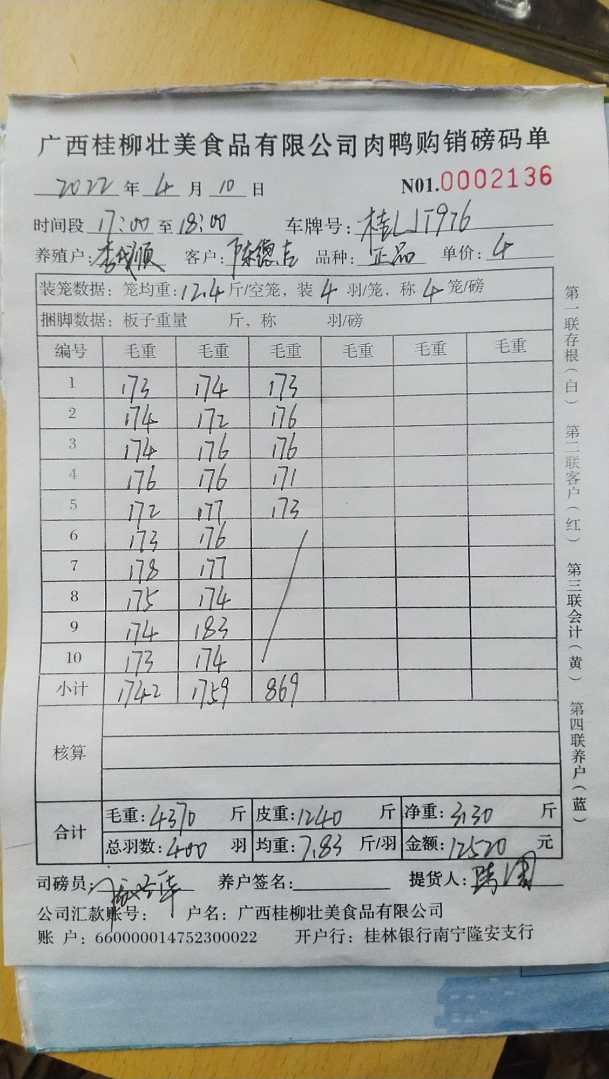 广西桂柳壮美食品有限公司肉鸭购销磅码单
2022 年 4 月 10 日 N01.0002136
时间段 17:00 至 18:00 车牌号: 桂LJT976
养殖户: 李成顺 客户: 陈德志 品种: 正品 单价: 4
装笼数据: 笼均重: 12.4 斤/空笼, 装 4 羽/笼, 称 4 笼/磅
捆脚数据: 板子重量 斤, 称 羽/磅
编号 毛重 毛重 毛重 毛重 毛重 毛重
1 173 174 173
2 174 172 176
3 174 176 176
4 176 176 171
5 172 177 173
6 173 176
7 178 177
8 175 174
9 174 183
10 173 174
小计 1742 1759 869
核算
合计 毛重: 4370 斤 皮重: 1240 斤 净重: 3130 斤
总羽数: 400 羽 均重: 7.83 斤/羽 金额: 12520 元
司磅员: 养户签名: 提货人:
公司汇款账号: 户名: 广西桂柳壮美食品有限公司
账 户: 660000014752300022 开户行: 桂林银行南宁隆安支行
第一联存根(白) 第二联客户(红) 第三联会计(黄) 第四联养户(蓝)